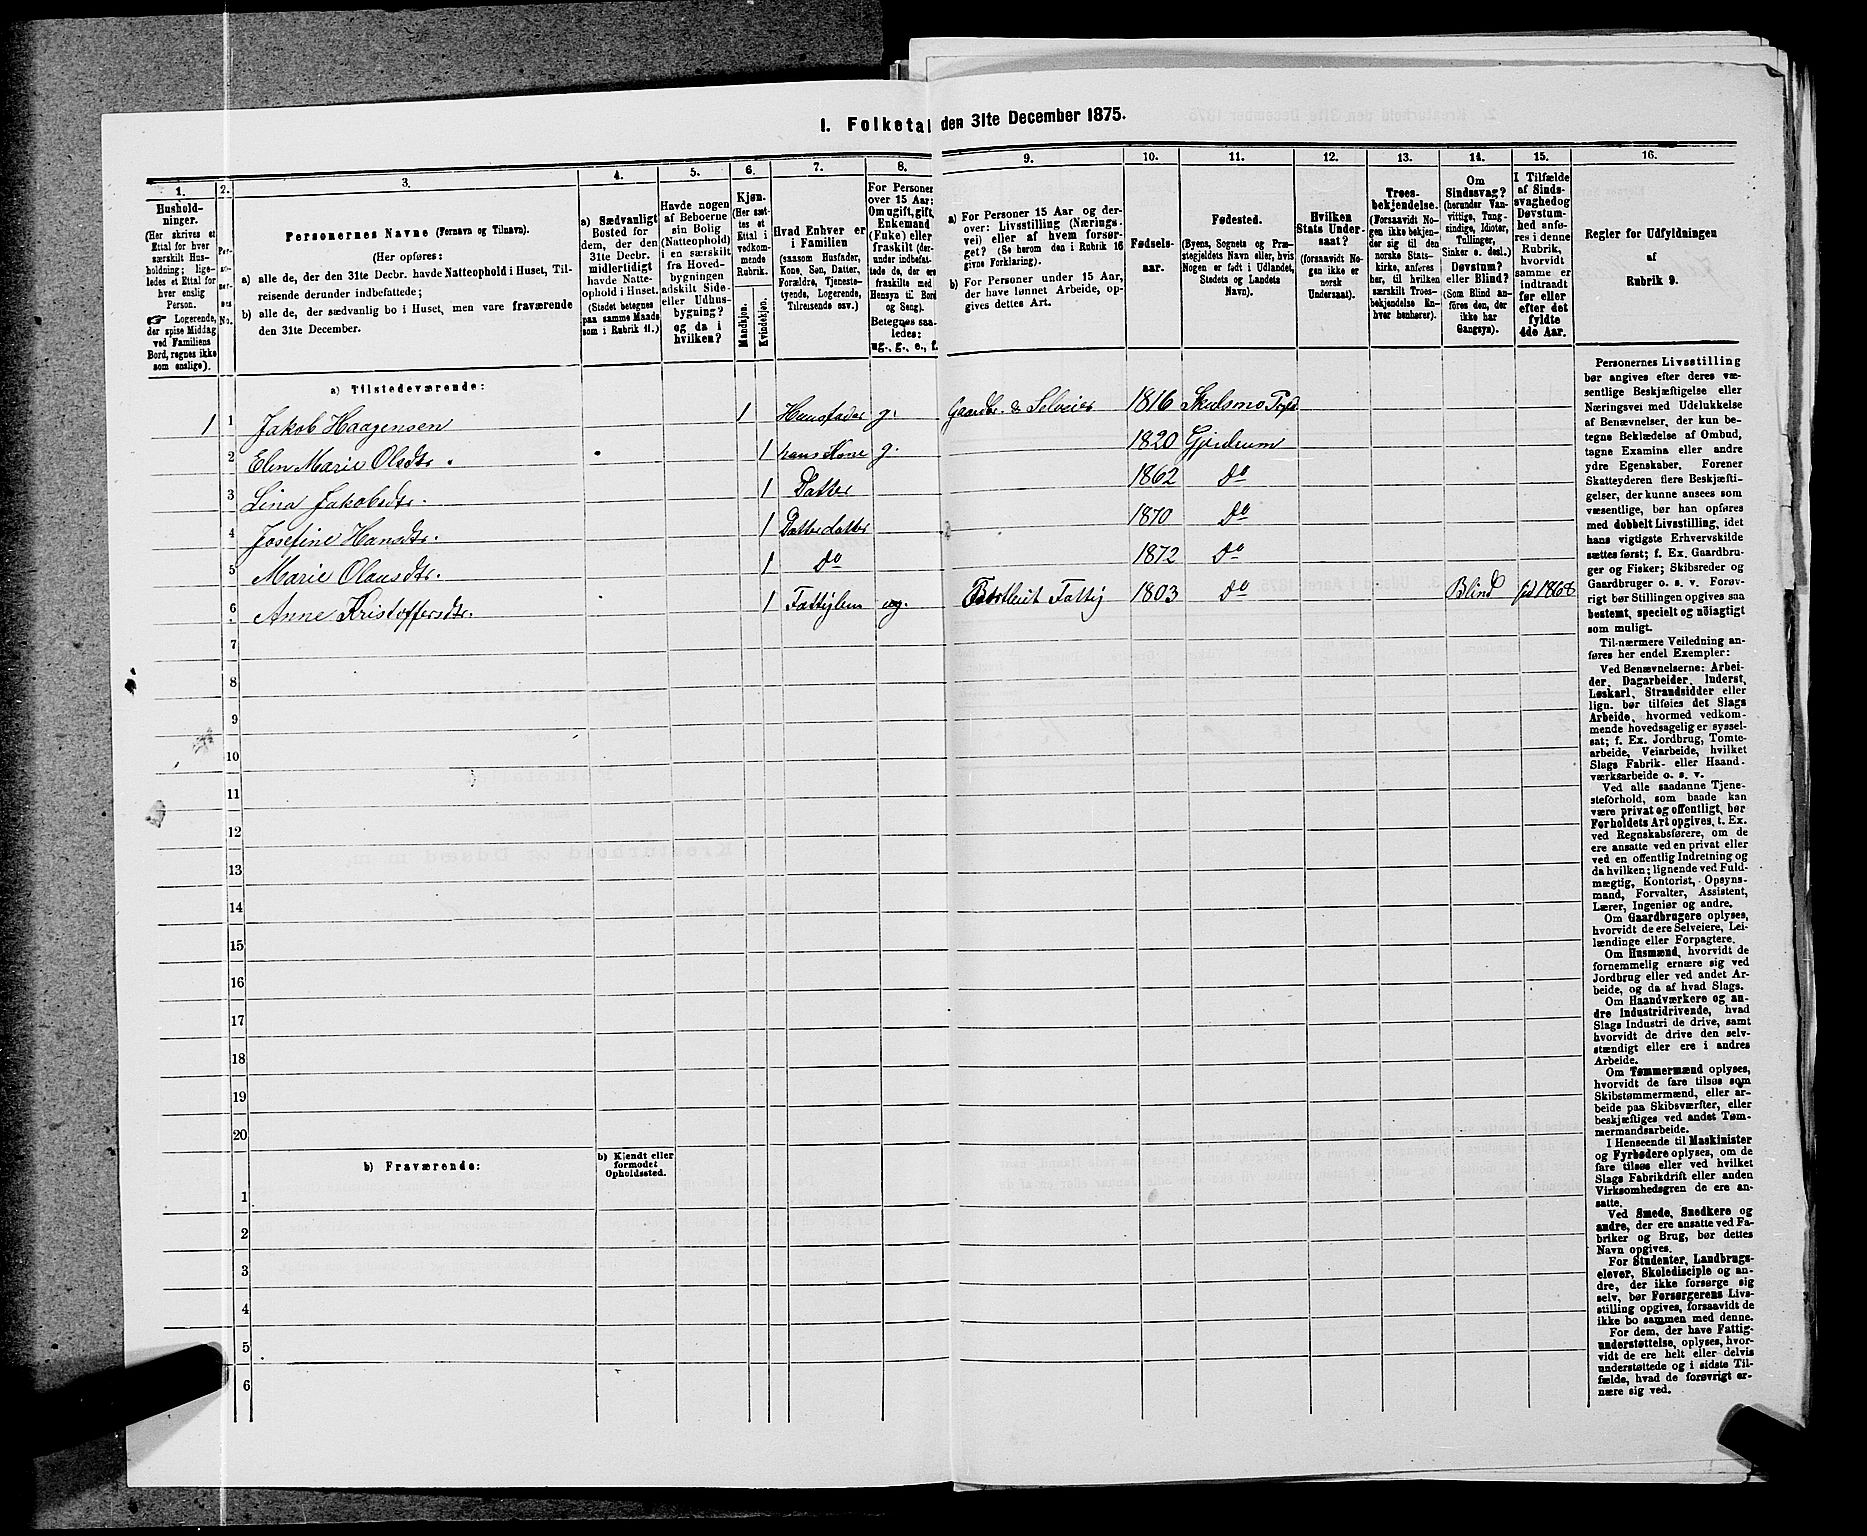 I. Folketal den 31te December 1875.
1.
2.
3.
4.
5.
6.
7.
8.
9.
10.
11.
12.
13.
14.
15.
16.
Hushold-
ninger.
(Her skrives et
Ettal for hver
særskilt Hus-
holdning; lige-
ledes et Ettal for
hver enslig
Person.
☞ Logerende,
der spise Middag
ved Familiens
Bord, regnes ikke
som enslige).
Per-
so-
ner-
nes
No.
Personernes Navne (Fornavn og Tilnavn).
(Her opføres:
a) alle de, der den 31te Decbr. havde Natteophold i Huset, Til-
reisende derunder indbefattede;
b) alle de, der sædvanlig bo i Huset, men vare fraværende
den 31te December.
a) Sædvanligt
Bosted for
dem, der den
31te Decbr.
midlertidigt
havde Natte-
ophold i Huset.
(Stedet betegnes
paa samme Maade
som i Rubrik 11.)
Havde nogen
af Beboerne
sin Bolig
(Natteophold)
i en særskilt
fra Hoved-
bygningen
adskilt Side-
eller Udhus-
bygning?
og da i
hvilken?
Kjøn.
(Her sæt-
tes et
Ettal i
vedkom-
mende
Rubrik.
Mandkjøn.
Kvindekjøn.
Hvad Enhver er
i Familien
(saasom Husfader,
Kone, Søn, Datter,
Forældre, Tjeneste-
tyende, Logerende,
Tilreisende osv.)
For Personer
over 15 Aar:
Om ugift, gift,
Enkemand
(Fuke) eller
fraskilt (der-
under indbefat-
tede de, der ere
fraskilte med
Hensyn til Bord
og Seng).
Betegnes saa-
ledes:
ug., g., e., f.
a) For Personer 15 Aar og der-
over: Livsstilling (Nærings-
vei) eller af hvem forsør-
get? (Se herom den i Rubrik 16
givne Forklaring).
b) For Personer under 15 Aar,
der have lønnet Arbeide, op-
gives dettes Art.
Fødsels-
aar.
Fødested.
(Byens, Sognets og Præ-
stegjeldets Navn eller, hvis
Nogen er født i Udlandet,
Stedets og Landets
Navn).
Hvilken
Stats Under-
saat?
(forsaavidt No-
gen ikke er
norsk
Undersaat).
Troes-
bekjendelse.
(Forsaavidt No-
gen ikke bekjen-
der sig til den
norske Stats-
kirke, anføres
her, til hvilken
særskilt Troes-
bekjendelse En-
hver henhører).
Om
Sindssvag?
(herunder Van-
vittige, Tung-
sindige, Idioter,
Tullinger,
Sinker o. desl.)
Døvstum?
eller Blind?
(Som Blind an-
føres den, der
ikke har
Gangsyn).
I Tilfælde
af Sinds-
svaghed og
Døvstum-
hed anfø-
res i denne
Rubrik,
hvorvidt
samme er
indtraadt
før eller
efter det
fyldte
4de Aar.
Regler for Udfyldningen
af
Rubrik 9.
a) Tilstedeværende:
1 1 Jakob Haagensen 1 Huusfader g. Gaardbr. & Selveier 1816 Skulsmo
2 Elen Marie Olsdtr. 1 hans Kone g. 1820 Gjerdrum
3 Lina Jakobsdtr. 1 Datter 1862 Do
4 Josefine Hansdtr. 1 Datterdatter 1870 Do
5 Marie Olausdtr. 1 Do 1872 Do
6 Anne Kristoffersdtr. 1 Fattiglem ug. Fattig 1803 Do Blind 1868
7
8
9
10
11
12
13
14
15
16
17
18
19
20
b) Fraværende:
b) Kjendt eller
formodet
Opholdssted.
1
2
3
4
5
6
Personernes Livsstilling
bør angives efter deres væ-
sentlige Beskjæftigelse eller
Næringsvei med Udelukkelse
af Benævnelser, der kun be-
tegne Beklædelse af Ombud,
tagne Examina eller andre
ydre Egenskaber. Forener
Skatteyderen flere Beskjæfti-
gelser, der kunne ansees som
væsentlige, bør han opføres
med dobbelt Livsstilling, idet
hans vigtigste Erhvervskilde
sættes først; f. Ex. Gaardbru-
ger og Fisker; Skibsreder og
Gaardbruger o. s. v. Forøv-
rigt bør Stillingen opgives saa
bestemt, specielt og nøiagtigt
som muligt.
Til nærmere Veiledning an-
føres her endel Exempler:
Ved Benævnelserne: Arbei-
der, Dagarbeider, Inderst,
Løskarl, Strandsidder eller
lign. bør tilføies det Slags
Arbeide, hvormed vedkom-
mende hovedsagelig er syssel-
sat; f. Ex. Jordbrug, Tomte-
arbeide, Veiarbeide, hvilket
Slags Fabrik- eller Haand-
værksarbeide o. s. v.
Ved alle saadanne Tjene-
steforhold, som baade kan
være privat og offentligt, bør
Forholdets Art opgives, t. Ex.
ved Regnskabsførere, om de
ere ansatte ved en privat eller
ved en offentlig Indretning og
da hvilken; lignende ved Fuld-
mægtig, Kontorist, Opsyns-
mand, Forvalter, Assistent,
Lærer, Ingeniør og andre.
Om Gaardbrugere oplyses,
hvorvidt de ere Selveiere, Lei-
lændinge eller Forpagtere.
Om Husmænd, hvorvidt de
fornemmelig ernære sig ved
Jordbrug eller ved andet Ar-
beide, og da af hvad Slags.
Om Haandværkere og an-
dre Industridrivende, hvad
Slags Industri de drive, samt
hvorvidt de drive den selv-
stændigt eller ere i andres
Arbeide.
Om Tømmermænd oplyses,
hvorvidt de fare tilsøs som
Skibstømmermænd, eller ar-
beide paa Skibsværfter, eller
beskjæftiges ved andet Tøm-
mermandsarbeide.
I Henseende til Maskinister
og Fyrbødere oplyses, om de
fare tilsøs eller ved hvilket
Slags Fabrikdrift eller anden
Virksomhedsgren de ere an-
satte.
Ved Smede, Snedkere og
andre, der ere ansatte ved Fa-
briker og Brug, bør dettes
Navn opgives.
For Studenter, Landbrugs-
elever, Skoledisciple og an-
dre, der ikke forsørge sig
selv, bør Forsørgerens Livs-
stilling opgives, forsaavidt de
ikke bo sammen med denne.
For dem, der have Fattig-
understøttelse, oplyses, hvor-
vidt de ere helt eller delvis
understøttede og i sidste Til-
fælde, hvad de forøvrigt er-
nære sig ved.